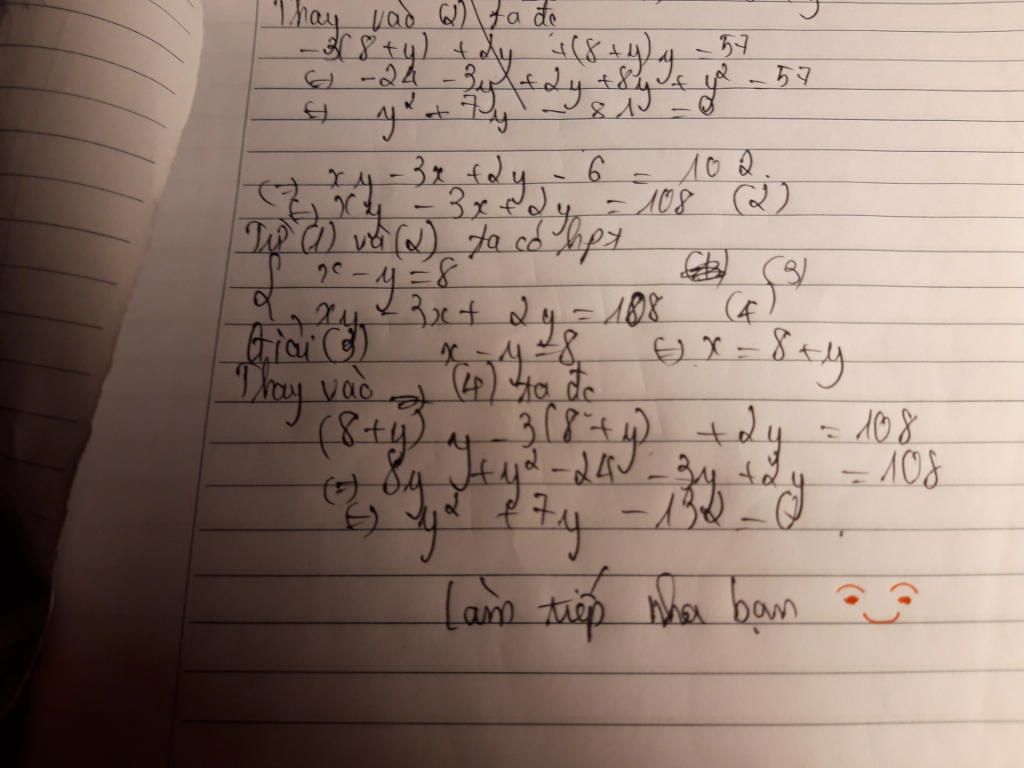 Thay vào (2) ta đc
-3(8+y) + 2y + (8+y)y = 57
(=) -24 - 3y + 2y + 8y + y² = 57
(=) y² + 7y - 81 = 0
xy - 3x + 2y - 6 = 102.
(=) xy - 3x + 2y = 108 (2)
Từ (1) và (2) ta có hpt
{ x - y = 8 (3)
xy - 3x + 2y = 108 (4)
Giải (3) x - y = 8 (=) x = 8 + y
Thay vào (4) ta đc
(8+y) y - 3(8+y) + 2y = 108
(=) 8y + y² - 24 - 3y + 2y = 108
(=) y² + 7y - 132 = 0
Làm tiếp nha bạn